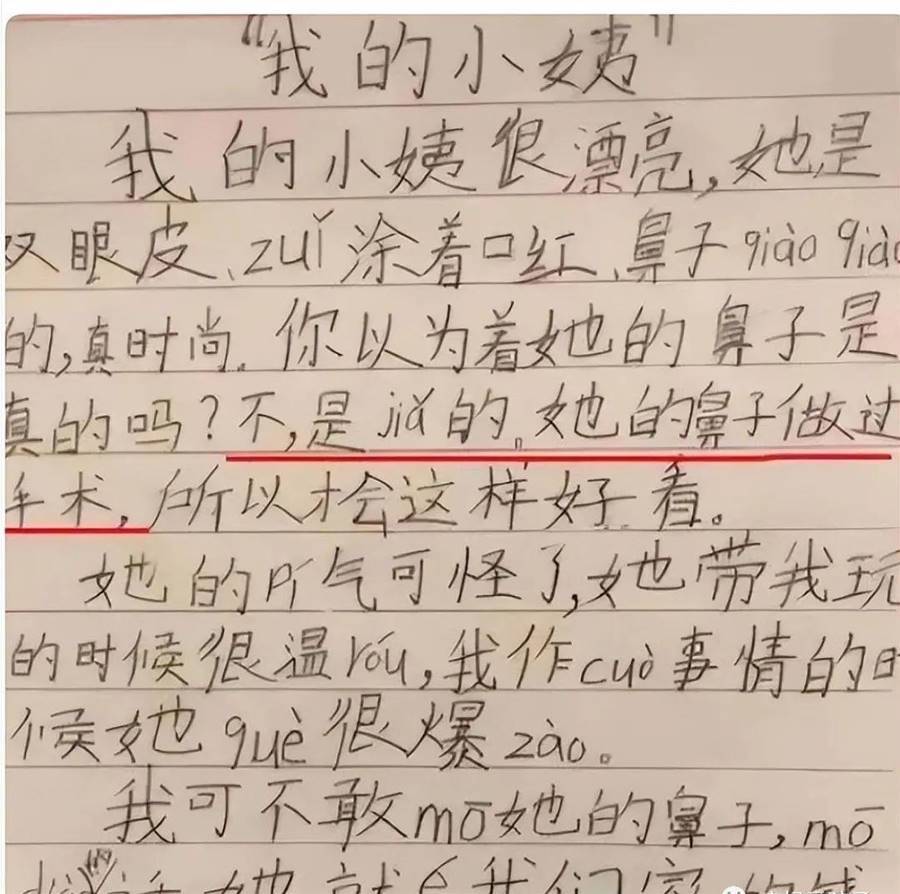 "我的小姨"
我的小姨很漂亮,她是
双眼皮、zuǐ涂着口红、鼻子qiào qiào
的,真时尚.你以为着她的鼻子是
真的吗?不,是jiǎ的。她的鼻子做过
手术,所以才会这样好看。
她的pí气可怪了,她带我玩
的时候很温róu,我作cuò事情的时
候她què很爆zào。
我可不敢mō她的鼻子,mō
的话她就